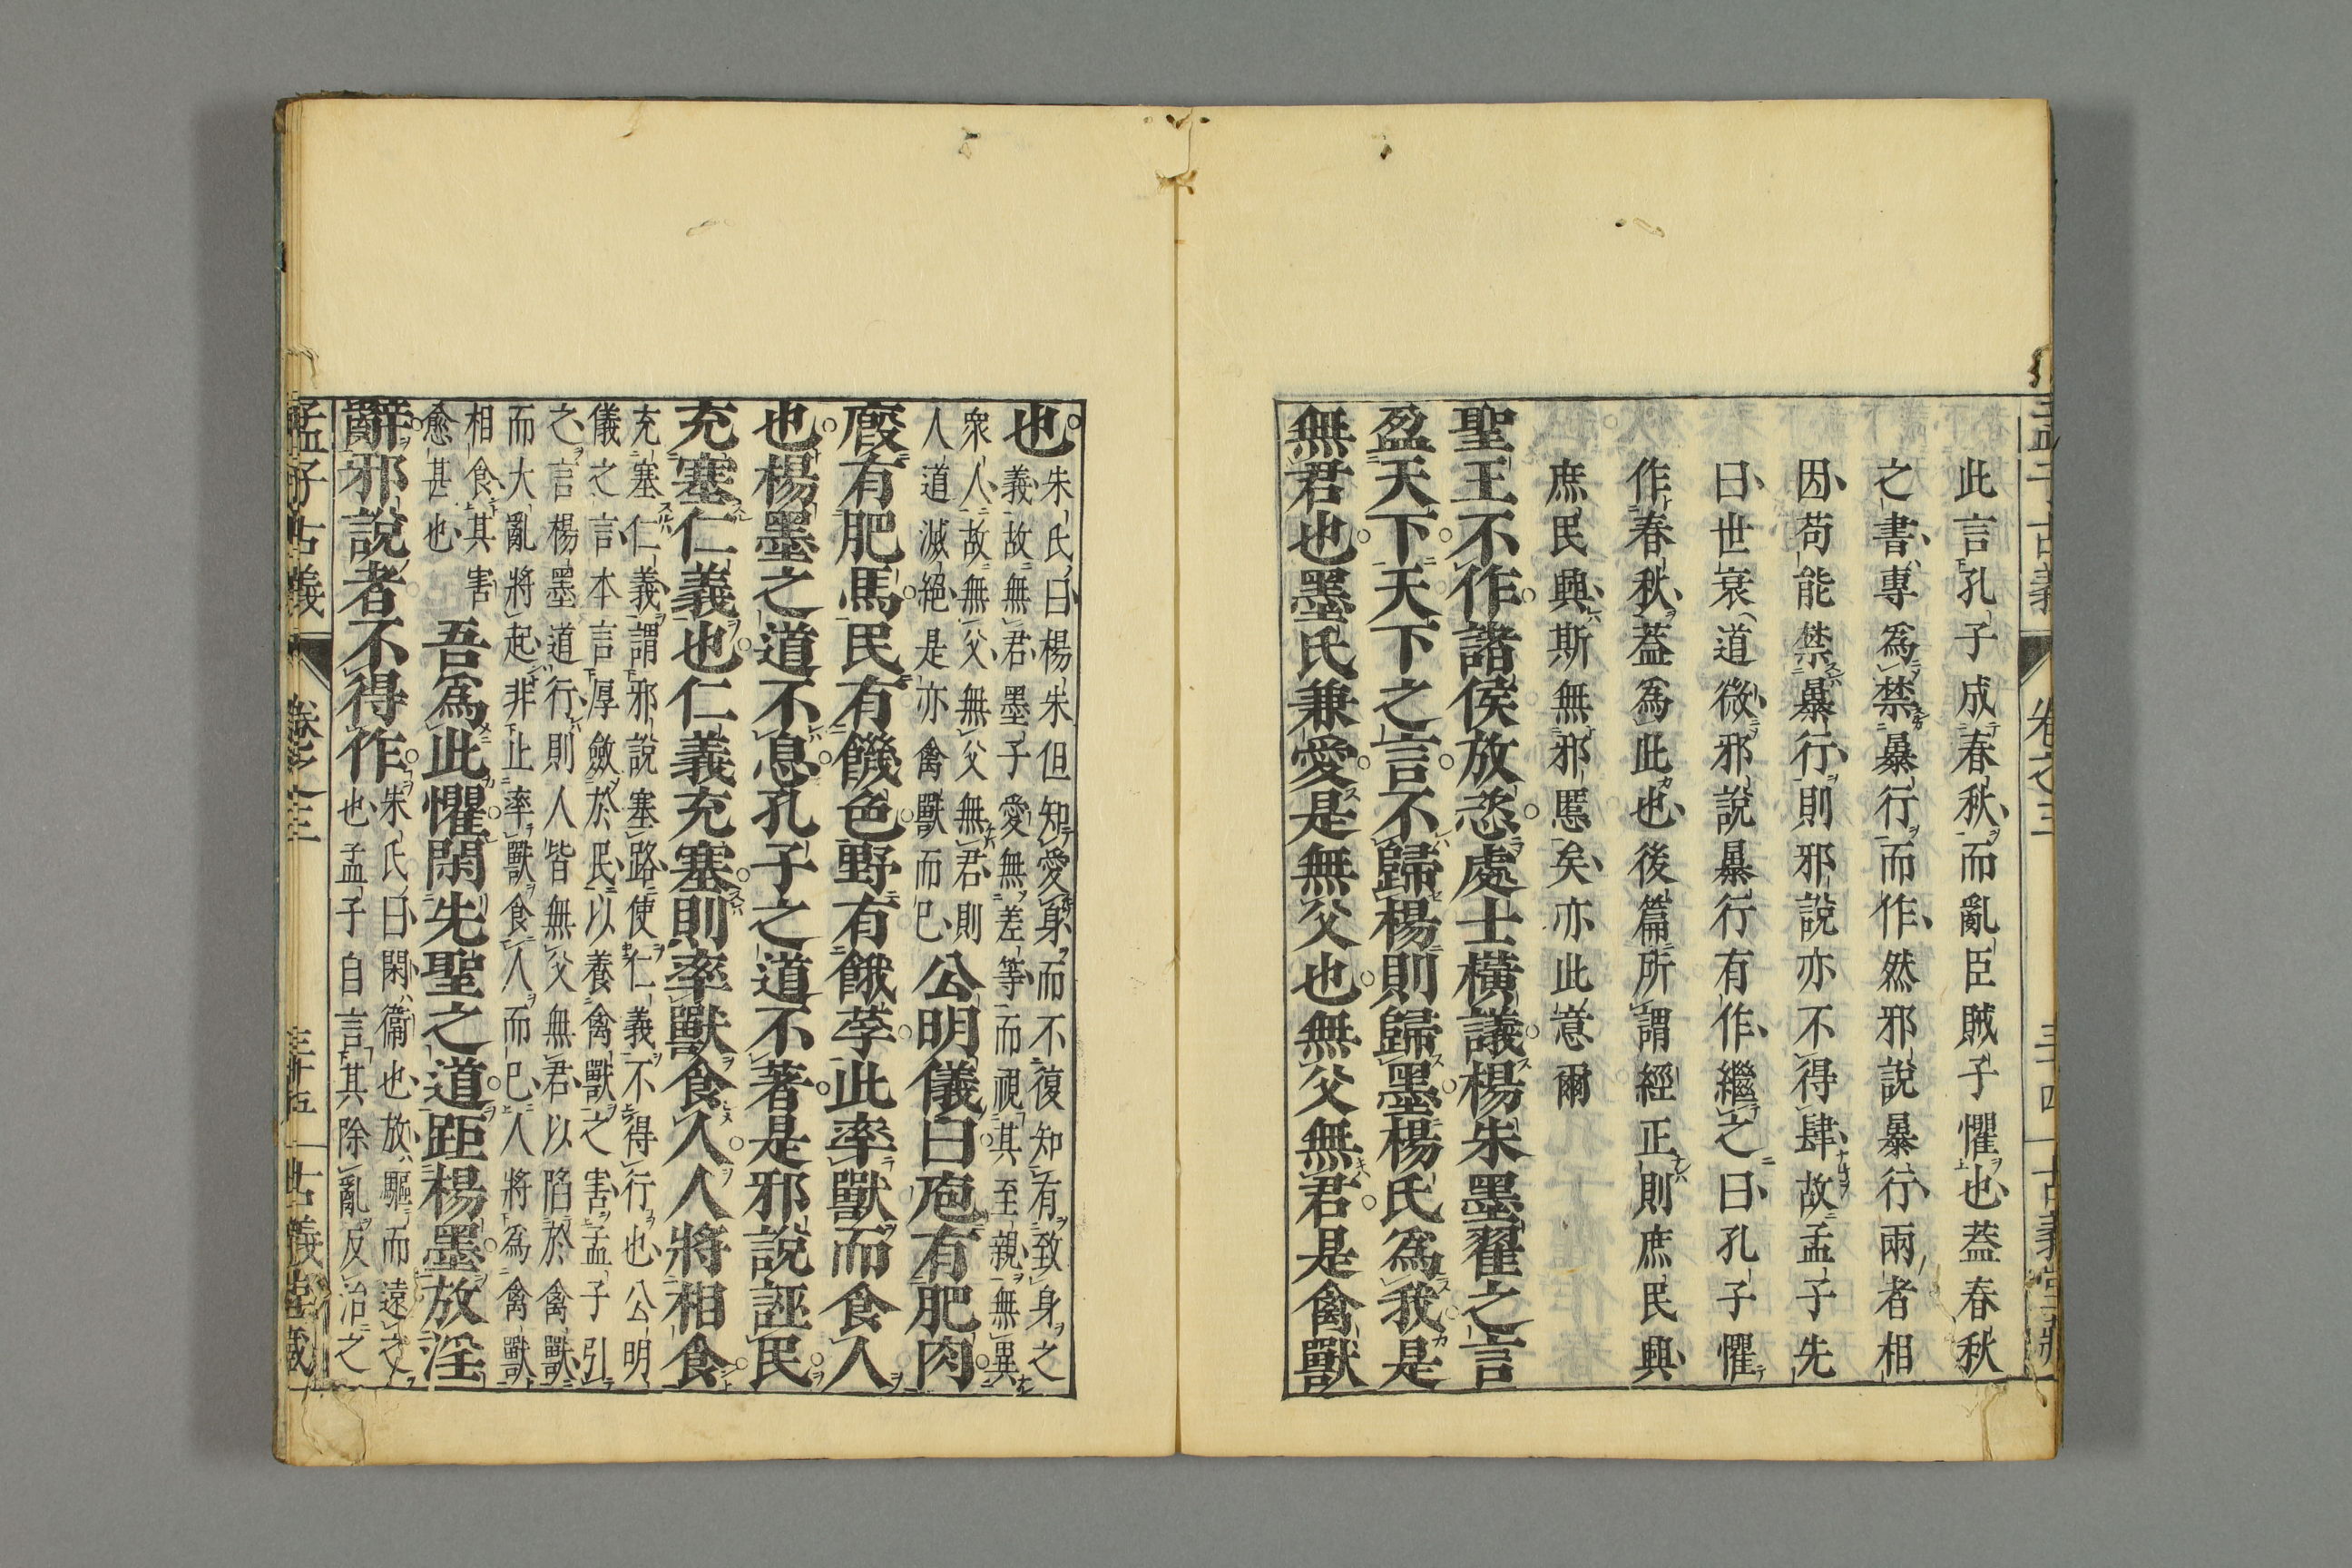 此言孔子成春秋而亂臣賊子懼也蓋春秋
之書專為禁暴行而作然邪說暴行兩者相
因苟能禁暴行則邪說亦不得肆故孟子先
曰世衰道微邪說暴行有作繼之曰孔子懼
作春秋蓋為此也後篇所謂經正則庶民興
庶民興斯無邪慝矣亦此意爾
聖王不作諸侯放恣處士橫議楊朱墨翟之言
盈天下天下之言不歸楊則歸墨楊氏為我是
無君也墨氏兼愛是無父也無父無君是禽獸
也
朱氏曰楊朱但知愛身而不復知有致身之
義故無君墨子愛無差等而視其至親無異
衆人故無父無父無君則
人道滅絕是亦禽獸而已
公明儀曰庖有肥肉
廄有肥馬民有饑色野有餓莩此率獸而食人
也楊墨之道不息孔子之道不著是邪說誣民
充塞仁義也仁義充塞則率獸食人人將相食
充塞仁義謂邪說塞路使仁義不得行也公明
儀之言本言厚斂於民以養禽獸之害孟子引
之言楊墨道行則人皆無父無君以陷於禽獸
而大亂將起非止率獸食人而已人將為禽獸
相食其害
愈甚也
吾為此懼閑先聖之道距楊墨放淫
辭邪說者不得作
朱氏曰閑衞也放驅而遠之
也孟子自言其除亂反治之
孟子古義
卷之三
三十五
古義堂藏